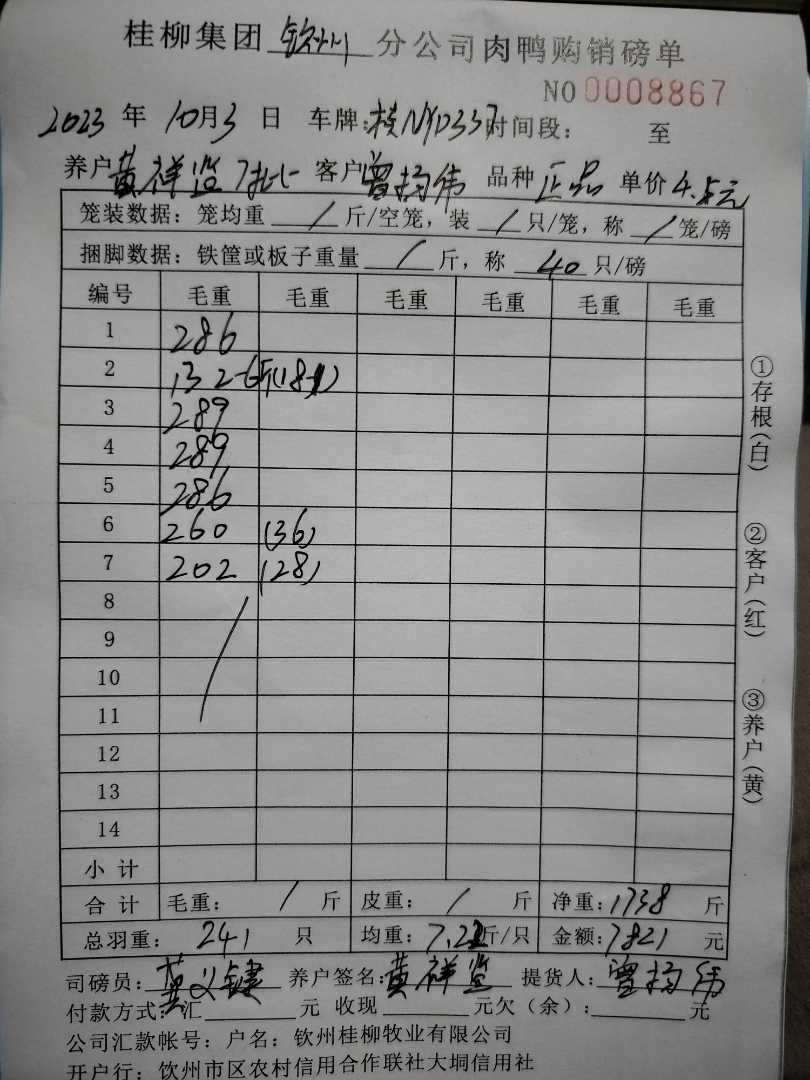 桂柳集团 钦州 分公司肉鸭购销磅单
NO 0008867
2023 年 10月3 日 车牌:桂NYD337 时间段: 至
养户黄祥监 客户曾扬伟 品种 正品 单价 4.5元
笼装数据: 笼均重 / 斤/空笼, 装 / 只/笼, 称 / 笼/磅
捆脚数据: 铁筐或板子重量 / 斤, 称 40 只/磅
编号 毛重 毛重 毛重 毛重 毛重 毛重
1 286
2 132-6斤(18-1)
3 289
4 289
5 286
6 260 (36)
7 202 (28)
8 /
9
10
11
12
13
14
小 计
合 计 毛重: / 斤 皮重: / 斤 净重:1738 斤
总羽重: 241 只 均重: 7.21斤/只 金额:7821 元
司磅员: 黄义键 养户签名:黄祥监 提货人:曾扬伟
付款方式: 汇 元 收现 元欠(余): 元
公司汇款帐号: 户名: 钦州桂柳牧业有限公司
开户行: 钦州市区农村信用合作联社大垌信用社
①存根(白)
②客户(红)
③养户(黄)